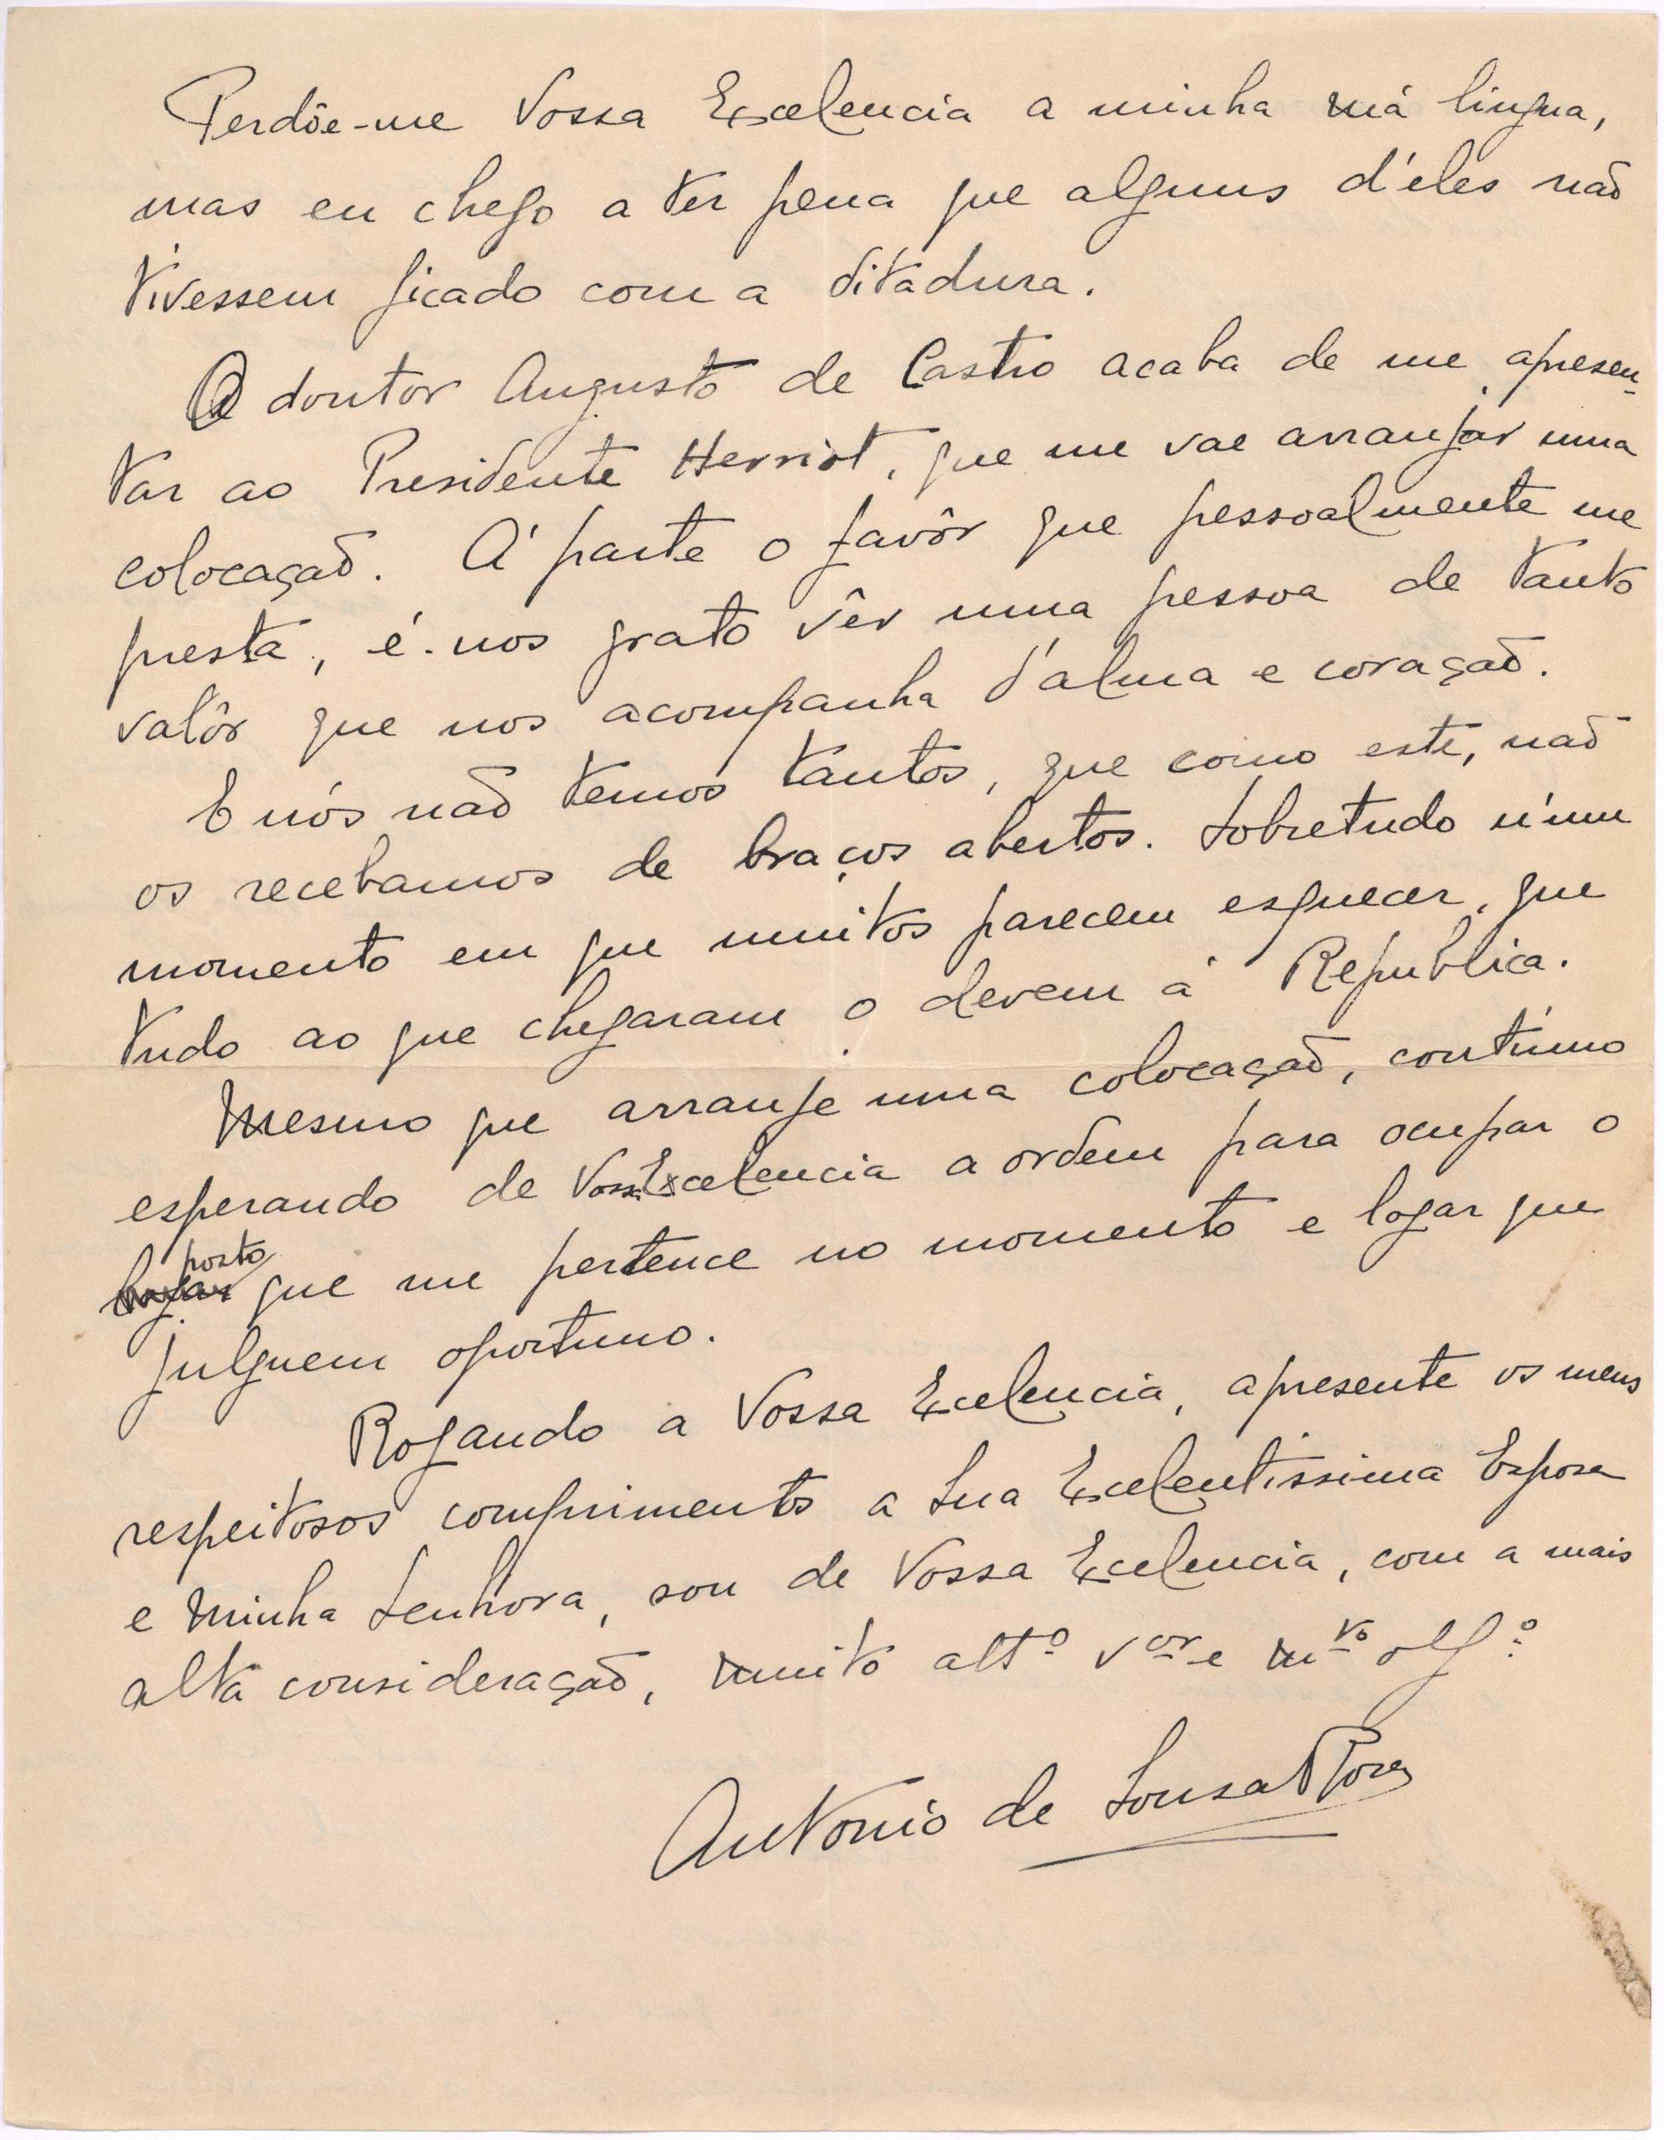 Perdôe-me Vossa Excelencia a minha má lingua,
mas eu chego a ter pena que alguns d'éles não
tivessem ficado com a ditadura.
O doutor Augusto de Castro acaba de me apresen-
tar ao Presidente Herriot, que me vae arranjar uma
colocação. Á parte o favôr que pessoalmente me
presta, é-nos grato vêr uma pessoa de tanto
valôr que nos acompanha d'alma e coração.
E nós não temos tantos, que como este, não
os recebamos de braços abertos. Sobretudo n'um
momento em que muitos parecem esquecer, que
tudo ao que chegaram o devem á Republica.
Mesmo que arranje uma colocação, contínuo
esperando de Vossa Excelencia a ordem para ocupar o
posto
logar que me pertence no momento e logar que
julguem oportuno.
Rogando a Vossa Excelencia, apresente os meus
respeitosos comprimentos a Sua Excelentissima Esposa
e Minha Senhora, sou de Vossa Excelencia, com a mais
alta consideração, Muito att.º v.or e M.to obg.º
Antonio de Sousa